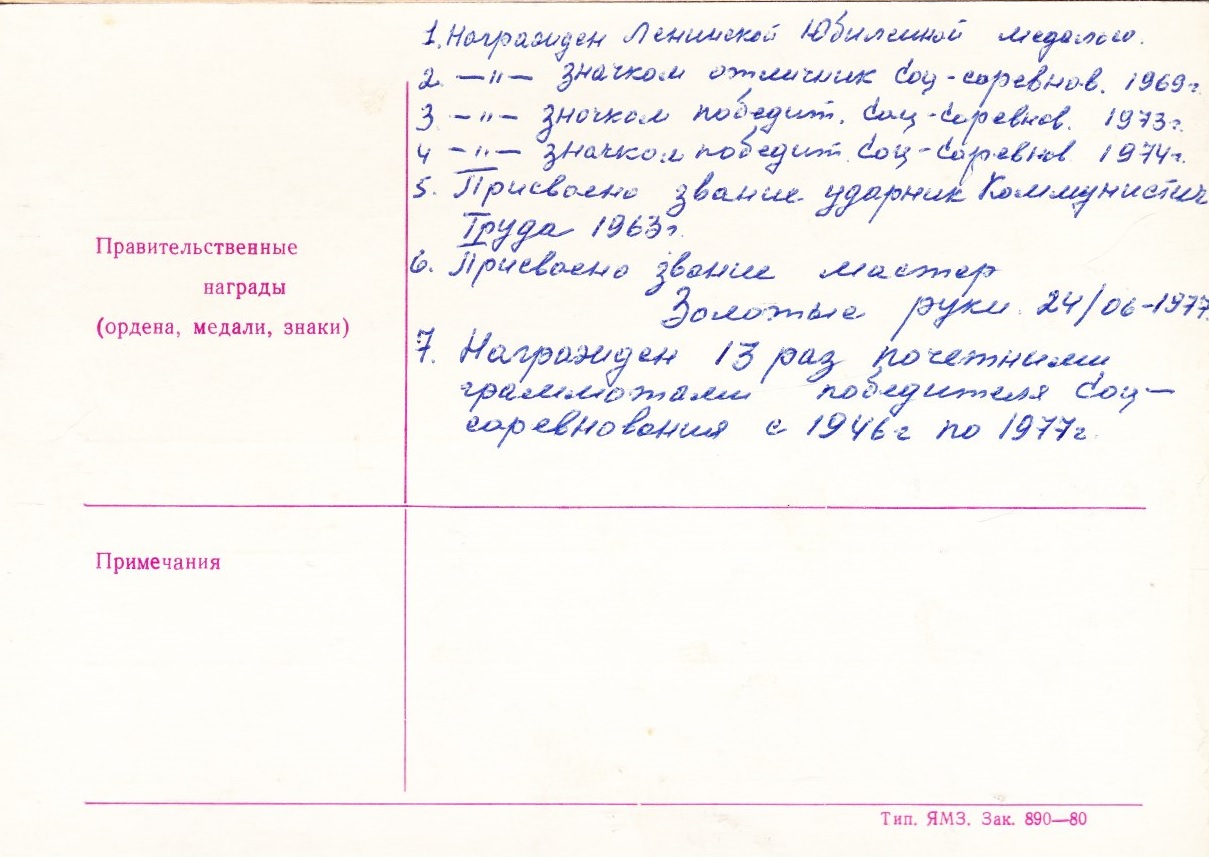 1. Награжден Ленинской Юбилейной медалью.
2. —"— значком отличник Соц-соревнов. 1969г.
3. —"— значком победит. Соц-соревнов. 1973г.
4 —"— значком победит. Соц-соревнов. 1974г.
5. Присвоено звание ударник Коммунистич
Труда 1963г.
6. Присвоено звание мастер
Золотые руки. 24/06-1977.
7. Награжден 13 раз почетними
грамотами победителя Соц-
соревнования с 1946г по 1977г.
Правительственные
награды
(ордена, медали, знаки)
Примечания
Тип. ЯМЗ. Зак. 890—80